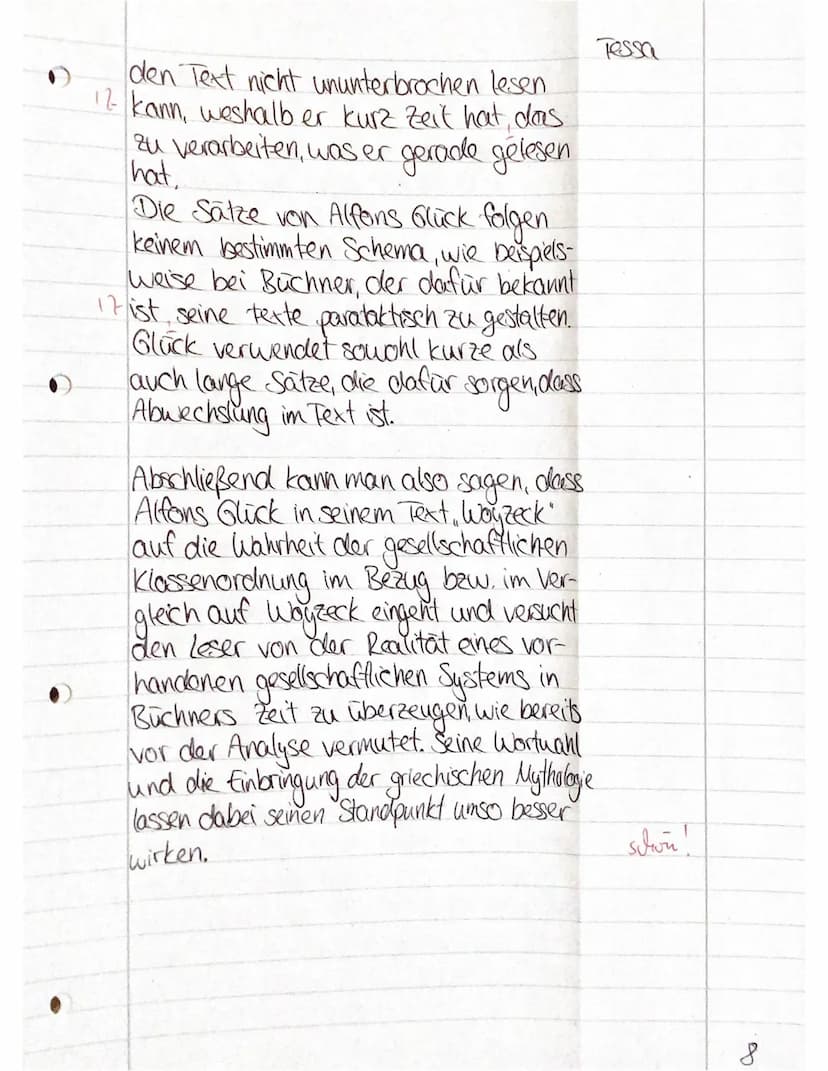 Tessa
den Text nicht ununterbrochen lesen
12 kann, weshalb er kurz Zeit hat, das
zu verarbeiten, was er gerade gelesen
hat.
Die Sätze von Alfons Glück folgen
keinem bestimmten Schema, wie beispiels-
weise bei Büchner, der dafür bekannt
17 ist, seine texte parataktisch zu gestalten.
Glück verwendet sowohl kurze als
auch lange Sätze, die dafür sorgen, dass
Abwechslung im Text ist.
Abschließend kann man also sagen, dass
Alfons Glück in seinem Text „Woyzeck"
auf die Wahrheit der gesellschaftlichen
Klassenordnung im Bezug bzw. im Ver-
gleich auf Woyzeck eingeht und versucht
den Leser von der Realität eines vor-
handenen gesellschaftlichen Systems in
Büchners Zeit zu überzeugen, wie bereits
vor der Analyse vermutet. Seine Wortwahl
und die Einbringung der griechischen Mythologie
lassen dabei seinen Standpunkt umso besser
wirken.
schön!
8